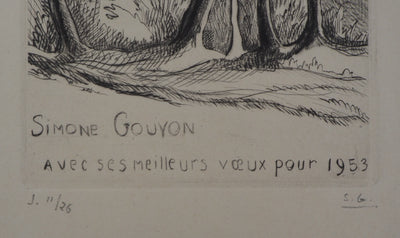 SIMONE GOUYON
AVEC SES MEILLEURS VŒUX POUR 1953
J. 11/26 S.G.